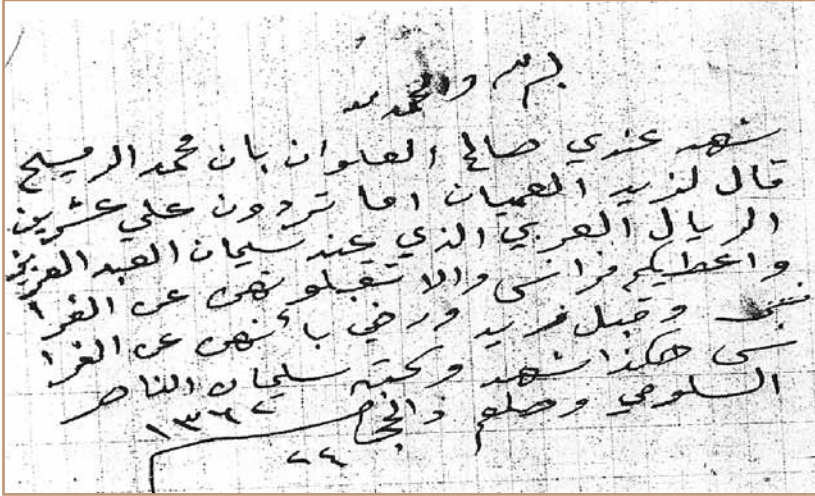 بسم الله والحمد لله
شهد عندي صالح العلوان بان محمد الرميح
قال لزيد العميان اما تردون علي عشرين
الريال العربي الذي عند سليمان العبد العزيز
واعطيكم فرانسى والا تقبلو نهن عن الفرا
نسى وقبل زيد ورضي بأنهن عن الفرا
نسى هكذا شهد وكتبه سليمان الناصر
السلومي وصلعم ١٣٦٢
٢٤